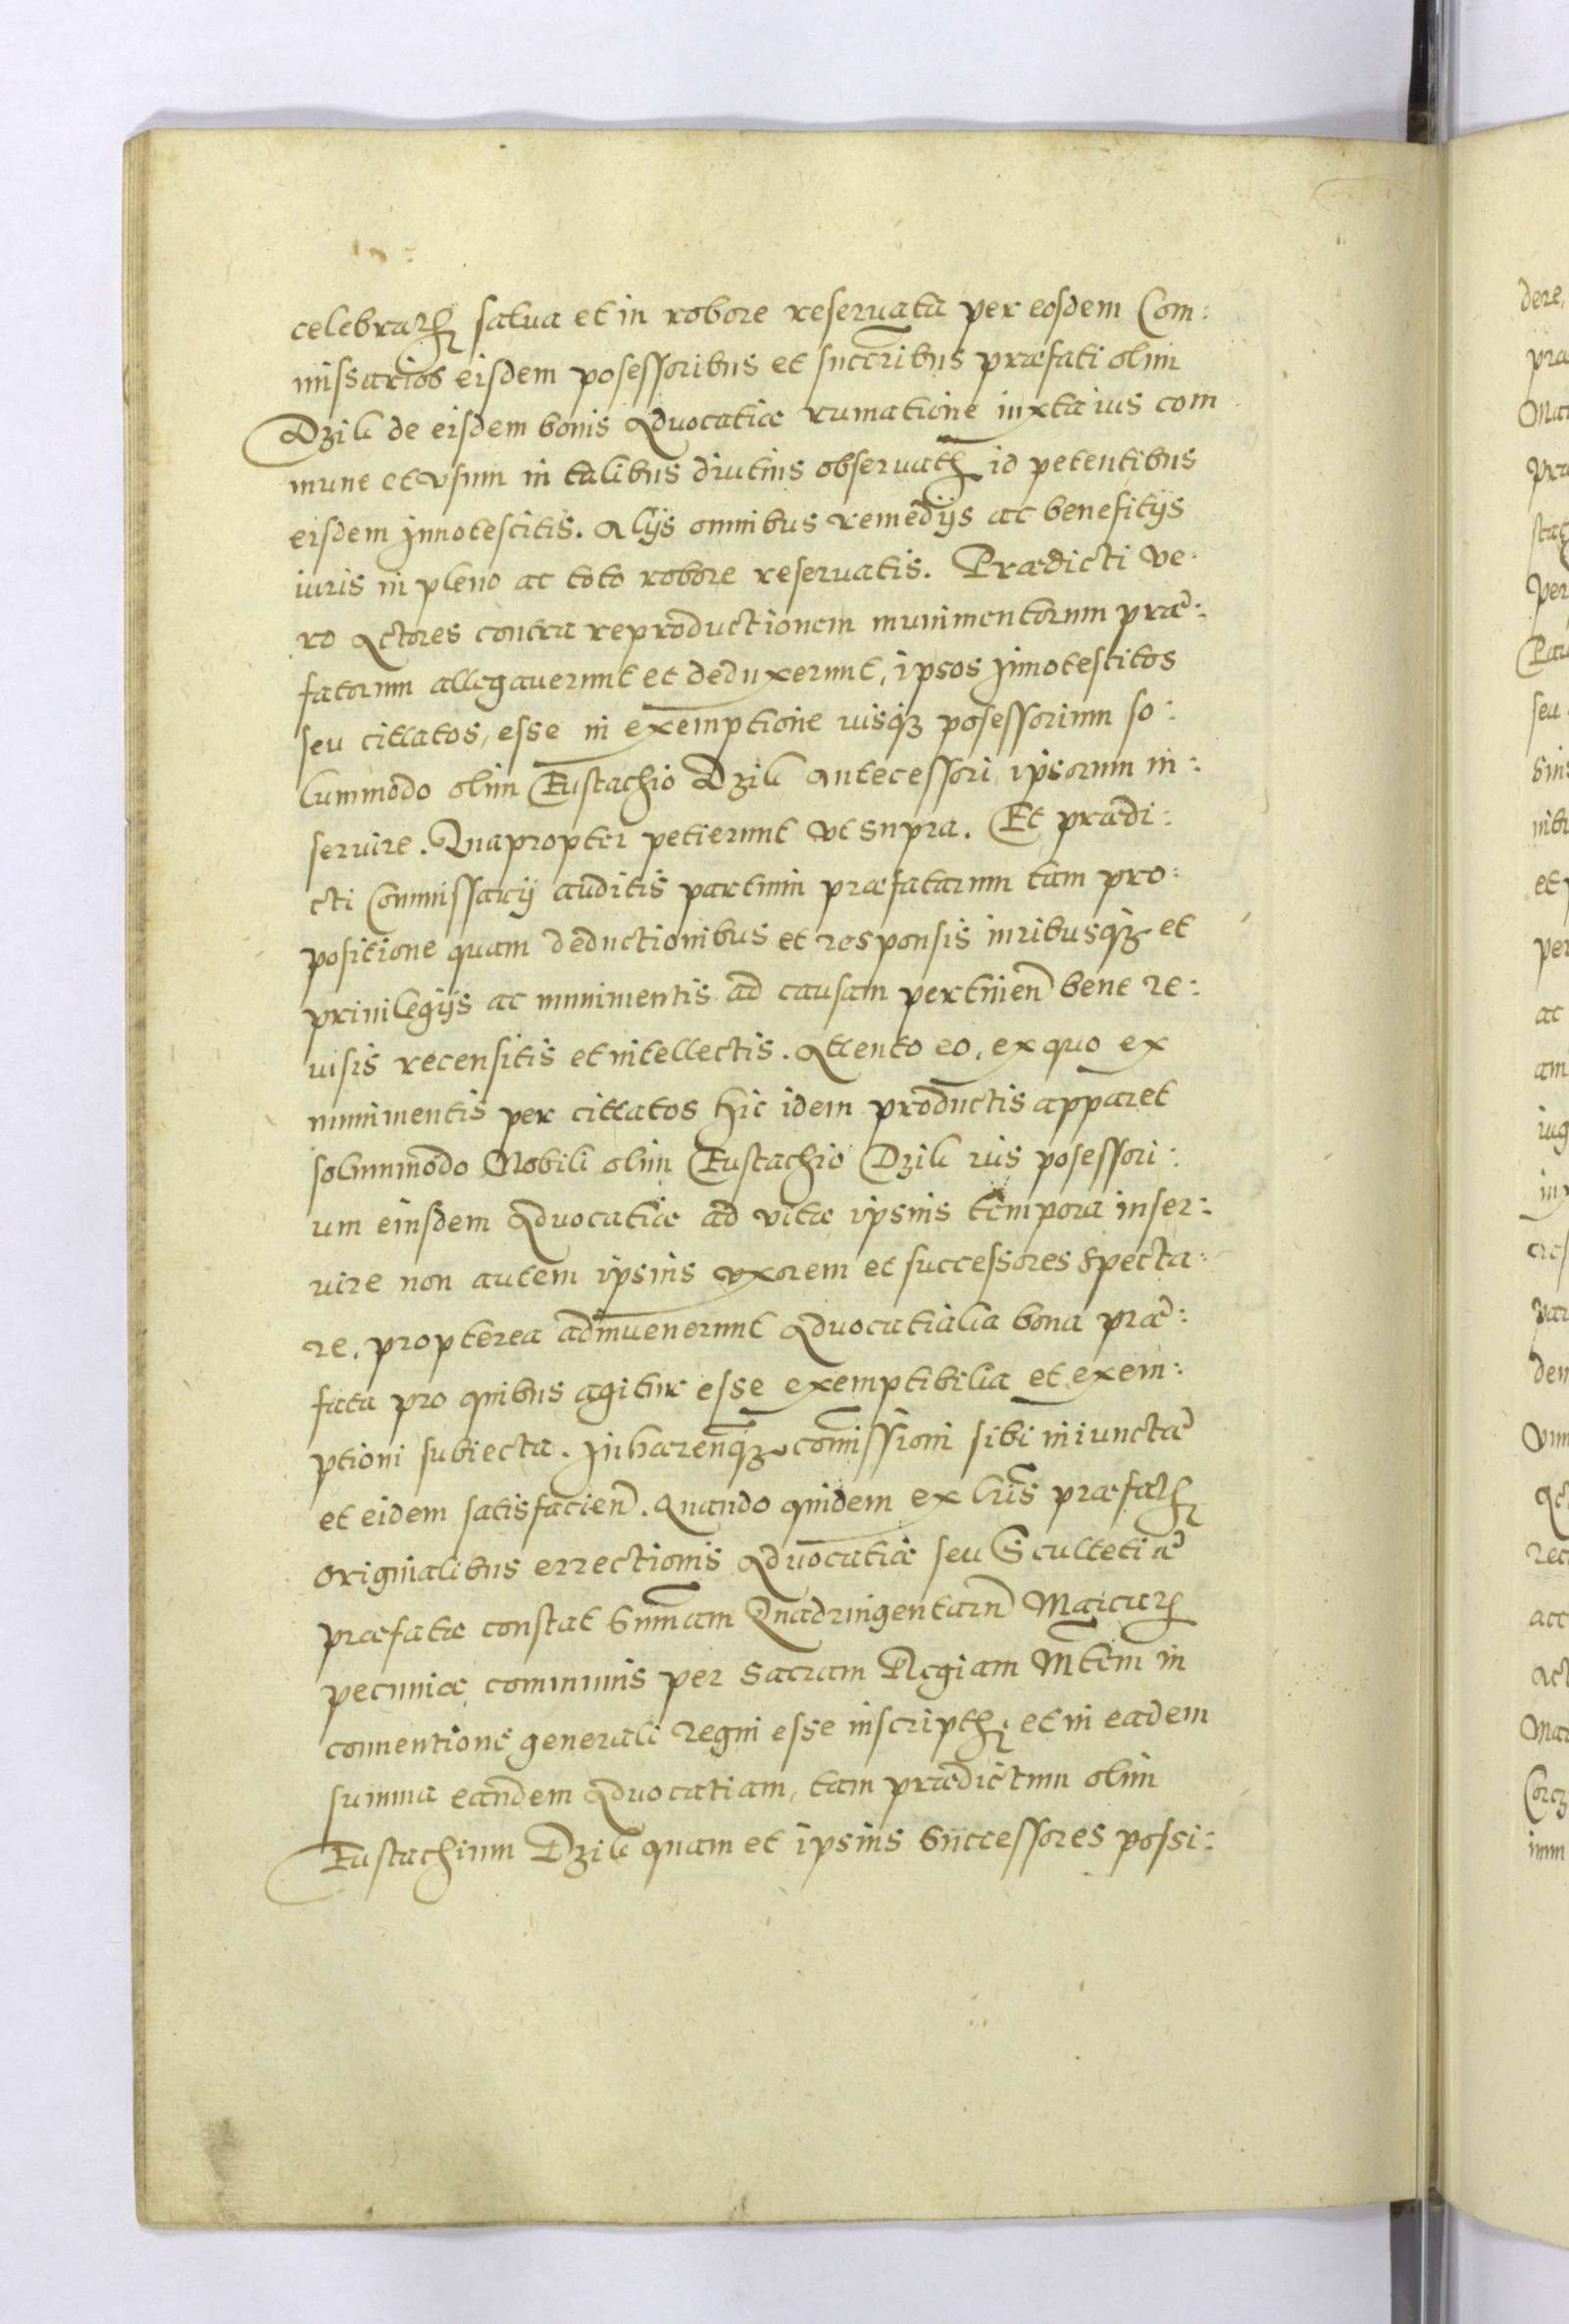 celebrat salva et in robore reservata per eosdem Com:
missarios eisdem posessoribus et succribus præfati olim
Dzili de eisdem bonis Advocatiæ rumatione iuxta ius com
mune et vsum in talibus diutius observat id petentibus
eisdem Innotescitis. Alijs omnibus remedijs ac benefitijs
iuris in pleno ac toto robore reservatis. Prædicti ve:
ro Actores contra reproductionem munimentorum præ:
fatorum allegauerunt et deduxerunt, ipsos Innotescitos
seu cittatos, esse in exemptione iusq3 posessorium so:
lummodo olim Eustachio Dzili antecessori ipsorum in:
servire. Quapropter petierunt vt supra. Et prædi:
cti Commissarij auditis partium præfatarum tam pro:
positione quam deductionibus et responsis iuribusq3 et
priuilegijs ac munimentis ad causam pertinen bene re:
visis recensitis et intellectis. Attento eo, ex quo ex
munimentis per cittatos hic idem productis apparet
solummodo Nobili olim Eustachio Dzili ius posessori:
um eiusdem Advocatiæ ad vitæ ipsius tempora inser:
vire non autem ipsius vxorem et successores specta:
re. propterea adinuenerunt Advocatialia bona præ:
fata pro quibus agitur esse exemptibilia et exem:
ptioni subiecta. Inhærenq3 comissioni sibi iniunctæ
et eidem satisfacien. Quando quidem ex lris præfat
originalibus errectionis Advocatiæ seu Scultetiæ
præfatæ constat Summam Quadringentarum Marcar
pecuniæ communis per Sacram Regiam Mtem in
conuentione generali Regni esse inscript et in eadem
summa eandem Advocatiam, tam prædictum olim
Eustachium Dzili quam et ipsius Successores possi:
dere,